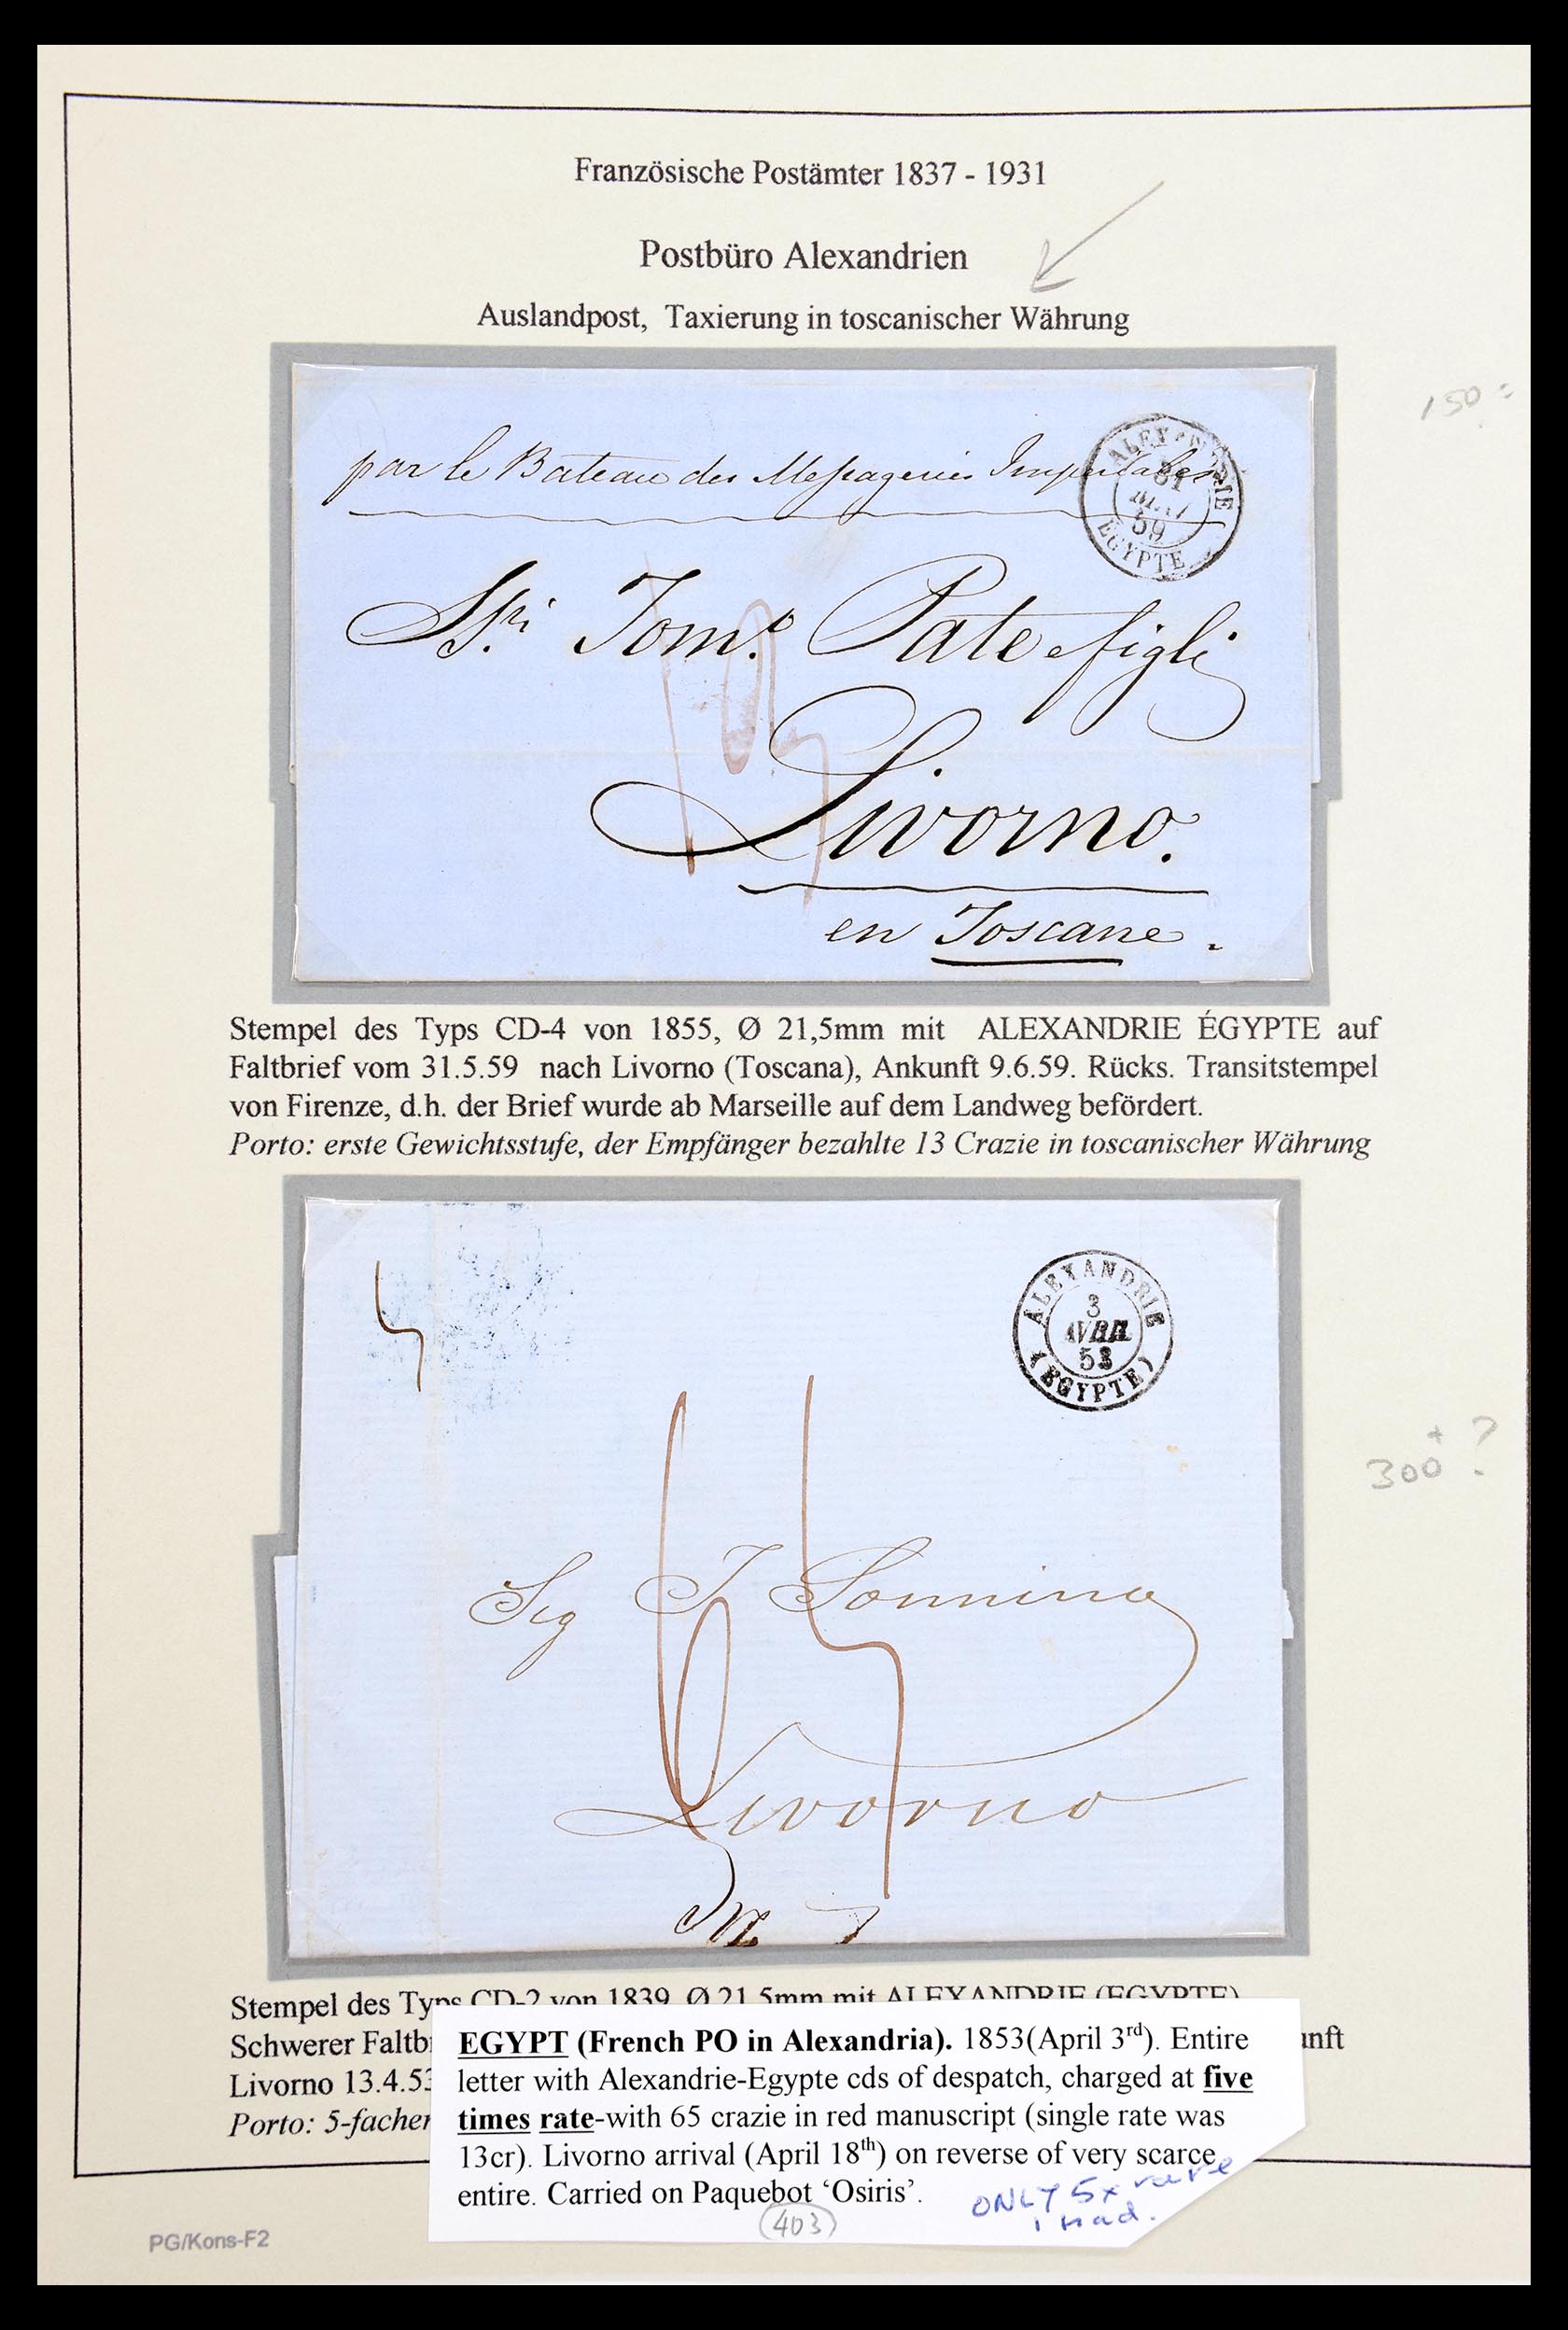 Französische Postämter 1837 - 1931
Postbüro Alexandrien
Auslandpost, Taxierung in toscanischer Währung
150 =
par le Bateau des Messageries Imperiales
31
MAI
59
EGYPTE
Spi Tomo. Pate e figli
13
Livorno.
en Toscane.
Stempel des Typs CD-4 von 1855, Ø 21,5mm mit ALEXANDRIE ÉGYPTE auf
Faltbrief vom 31.5.59 nach Livorno (Toscana), Ankunft 9.6.59. Rücks. Transitstempel
von Firenze, d.h. der Brief wurde ab Marseille auf dem Landweg befördert.
Porto: erste Gewichtsstufe, der Empfänger bezahlte 13 Crazie in toscanischer Währung
ALEXANDRIE
3
AVRIL
53
(EGYPTE)
65
300 + ?
Sig
Livorno
Stempel des Typs CD-2 von 1839, Ø 21,5mm mit ALEXANDRIE (EGYPTE)
Schwerer Faltb
Livorno 13.4.53
Porto: 5-facher
EGYPT (French PO in Alexandria). 1853(April 3rd). Entire
letter with Alexandrie-Egypte cds of despatch, charged at five
times rate-with 65 crazie in red manuscript (single rate was
13cr). Livorno arrival (April 18th) on reverse of very scarce
entire. Carried on Paquebot ‘Osiris’.
ONLY 5x rate
I had.
403
PG/Kons-F2